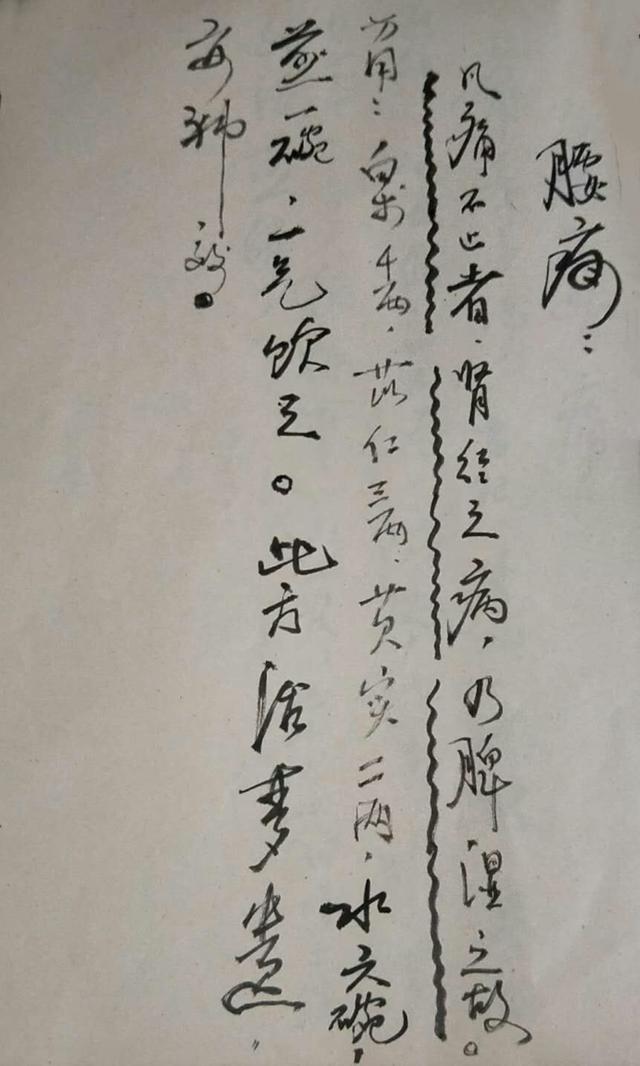 腰痛：
凡痛不止者，肾经之病，乃脾湿之故。
方用：白术两，苡仁三两，芡实二两，水六碗，
煎一碗，一气饮之。此方治梦遗，
神效。